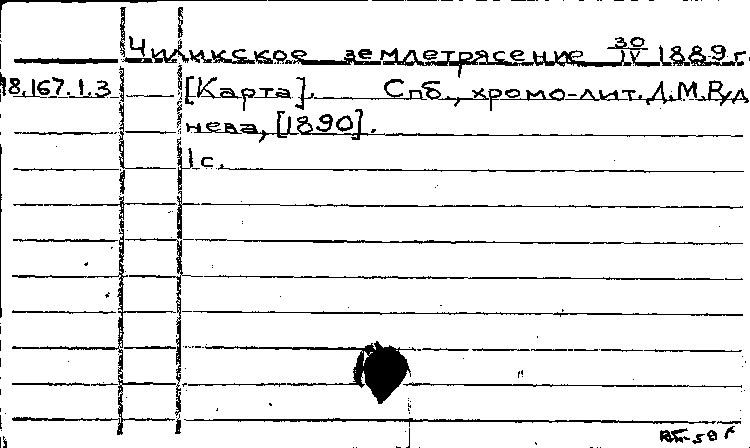 Чиликское землетрясение 30/IV 1889 г.
18.167.1.3 [Карта]. Спб., хромо-лит. Д.М. Руд
нева, [1890].
1 с.